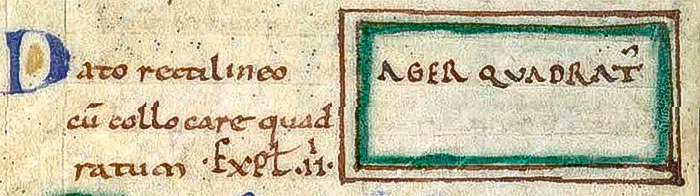 Dato rectilineo
cū collocare quad
ratum · Expl̅ · ii ·
AGER QVADRAT̅